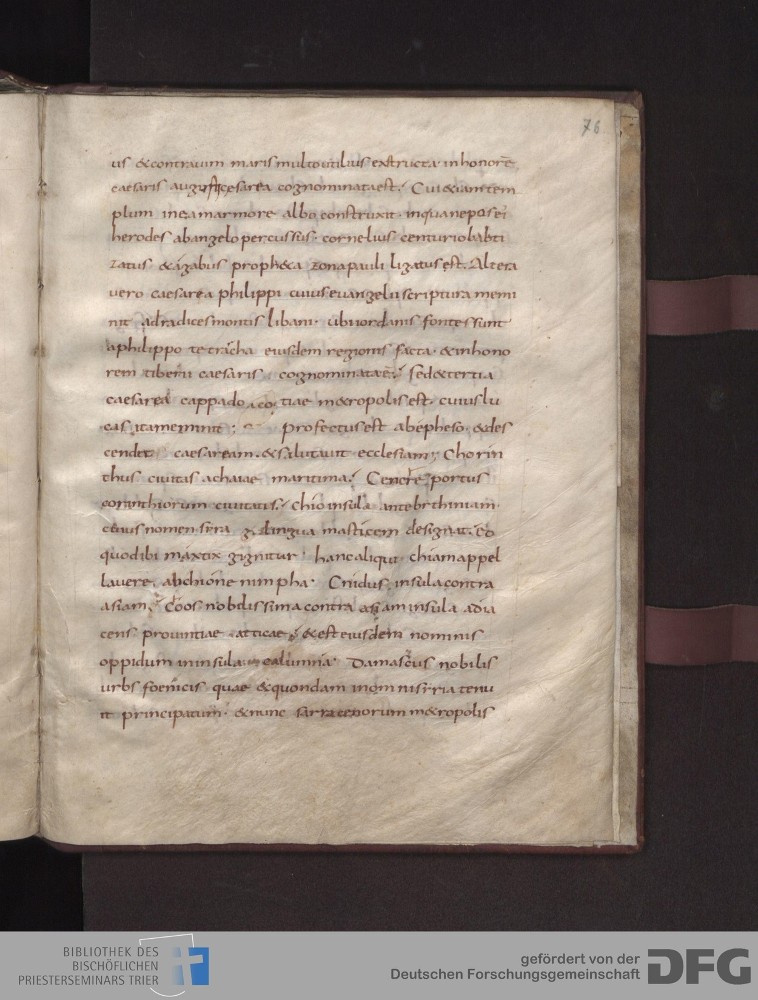 76
us & contra uim maris multo utilius exstructa · in honorē
caesaris augusti cesarea cognominata est · Cui & iam tem
plum in ea marmore albo construxit · in qua nepos ei
herodes ab angelo percussus · cornelius centurio babti
zatus · & agabus proph&a zona pauli ligatus est · Altera
uero caesarea philippi cuius euangelii scriptura memi
nit · ad radices montis libani · ubi iordanis fontes sunt
a philippo tetracha eiusdem regionis facta · & in hono
rem tiberii caesaris · cognominata ē · sed & tertia
caesarea cappadociae m&ropolis est · cuius lu
cas ita meminit : profectus est ab epheso · & des
cendit caesaream · & salutauit ecclesiam ; Chorin
thus ciuitas achaiae maritima · Cencre portus
corinthiorum ciuitatis · chio insula ante bithiniam ·
cuius nomen syra lingua masticem designat · eo
quod ibi mastix gignitur · hanc aliqui chiam appel
lauere · ab chione nimpha · Cnidus insula contra
asiam · Coos nobilissima contra asiam insula adia
cens prouintiae atticae · & est eiusdem nominis
oppidum in insula calumna · Damascus nobilis
urbs foenicis quae & quondam in omni siria tenu
it principatum · & nunc sarracenorum m&ropolis
BIBLIOTHEK DES
BISCHÖFLICHEN
PRIESTERSEMINARS TRIER
gefördert von der
Deutschen Forschungsgemeinschaft
DFG